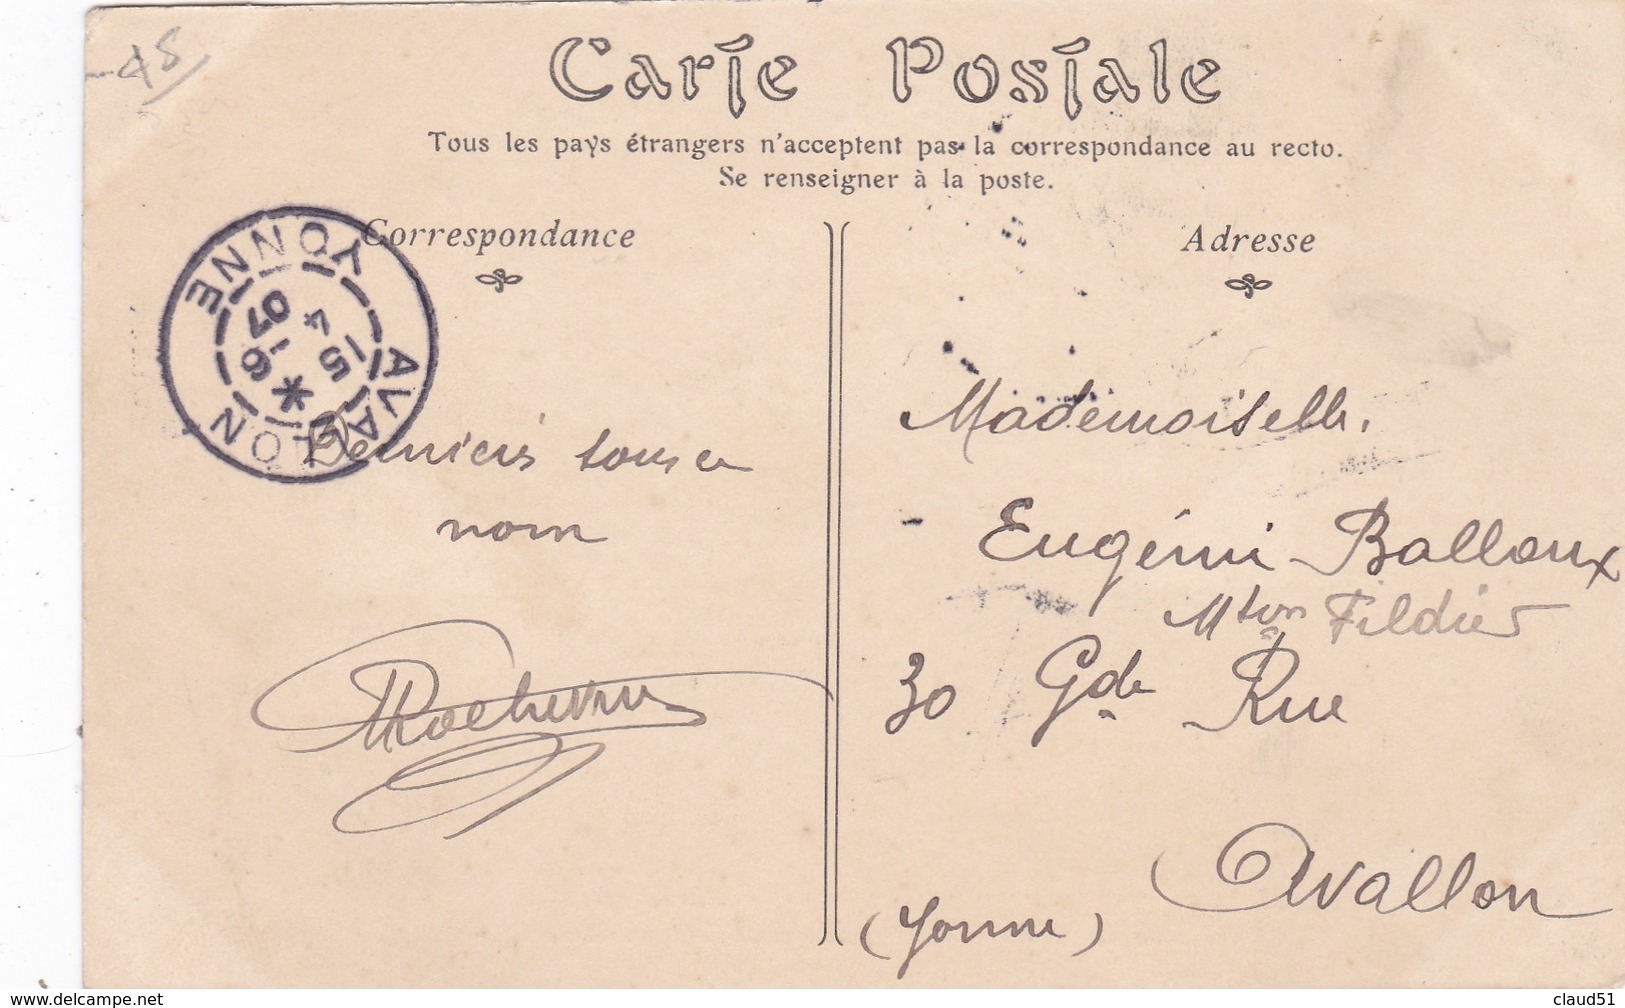 -45
Carte Postale
Tous les pays étrangers n'acceptent pas la correspondance au recto.
Se renseigner à la poste.
Correspondance
Adresse
AVALLON
YONNE
* 16
15
4
07
Mademoiselle.
nom
Eugénie Balloux
Mson Fildier
30 Gde Rue
Avallon
(Yonne)
www.delcampe.net
claud51